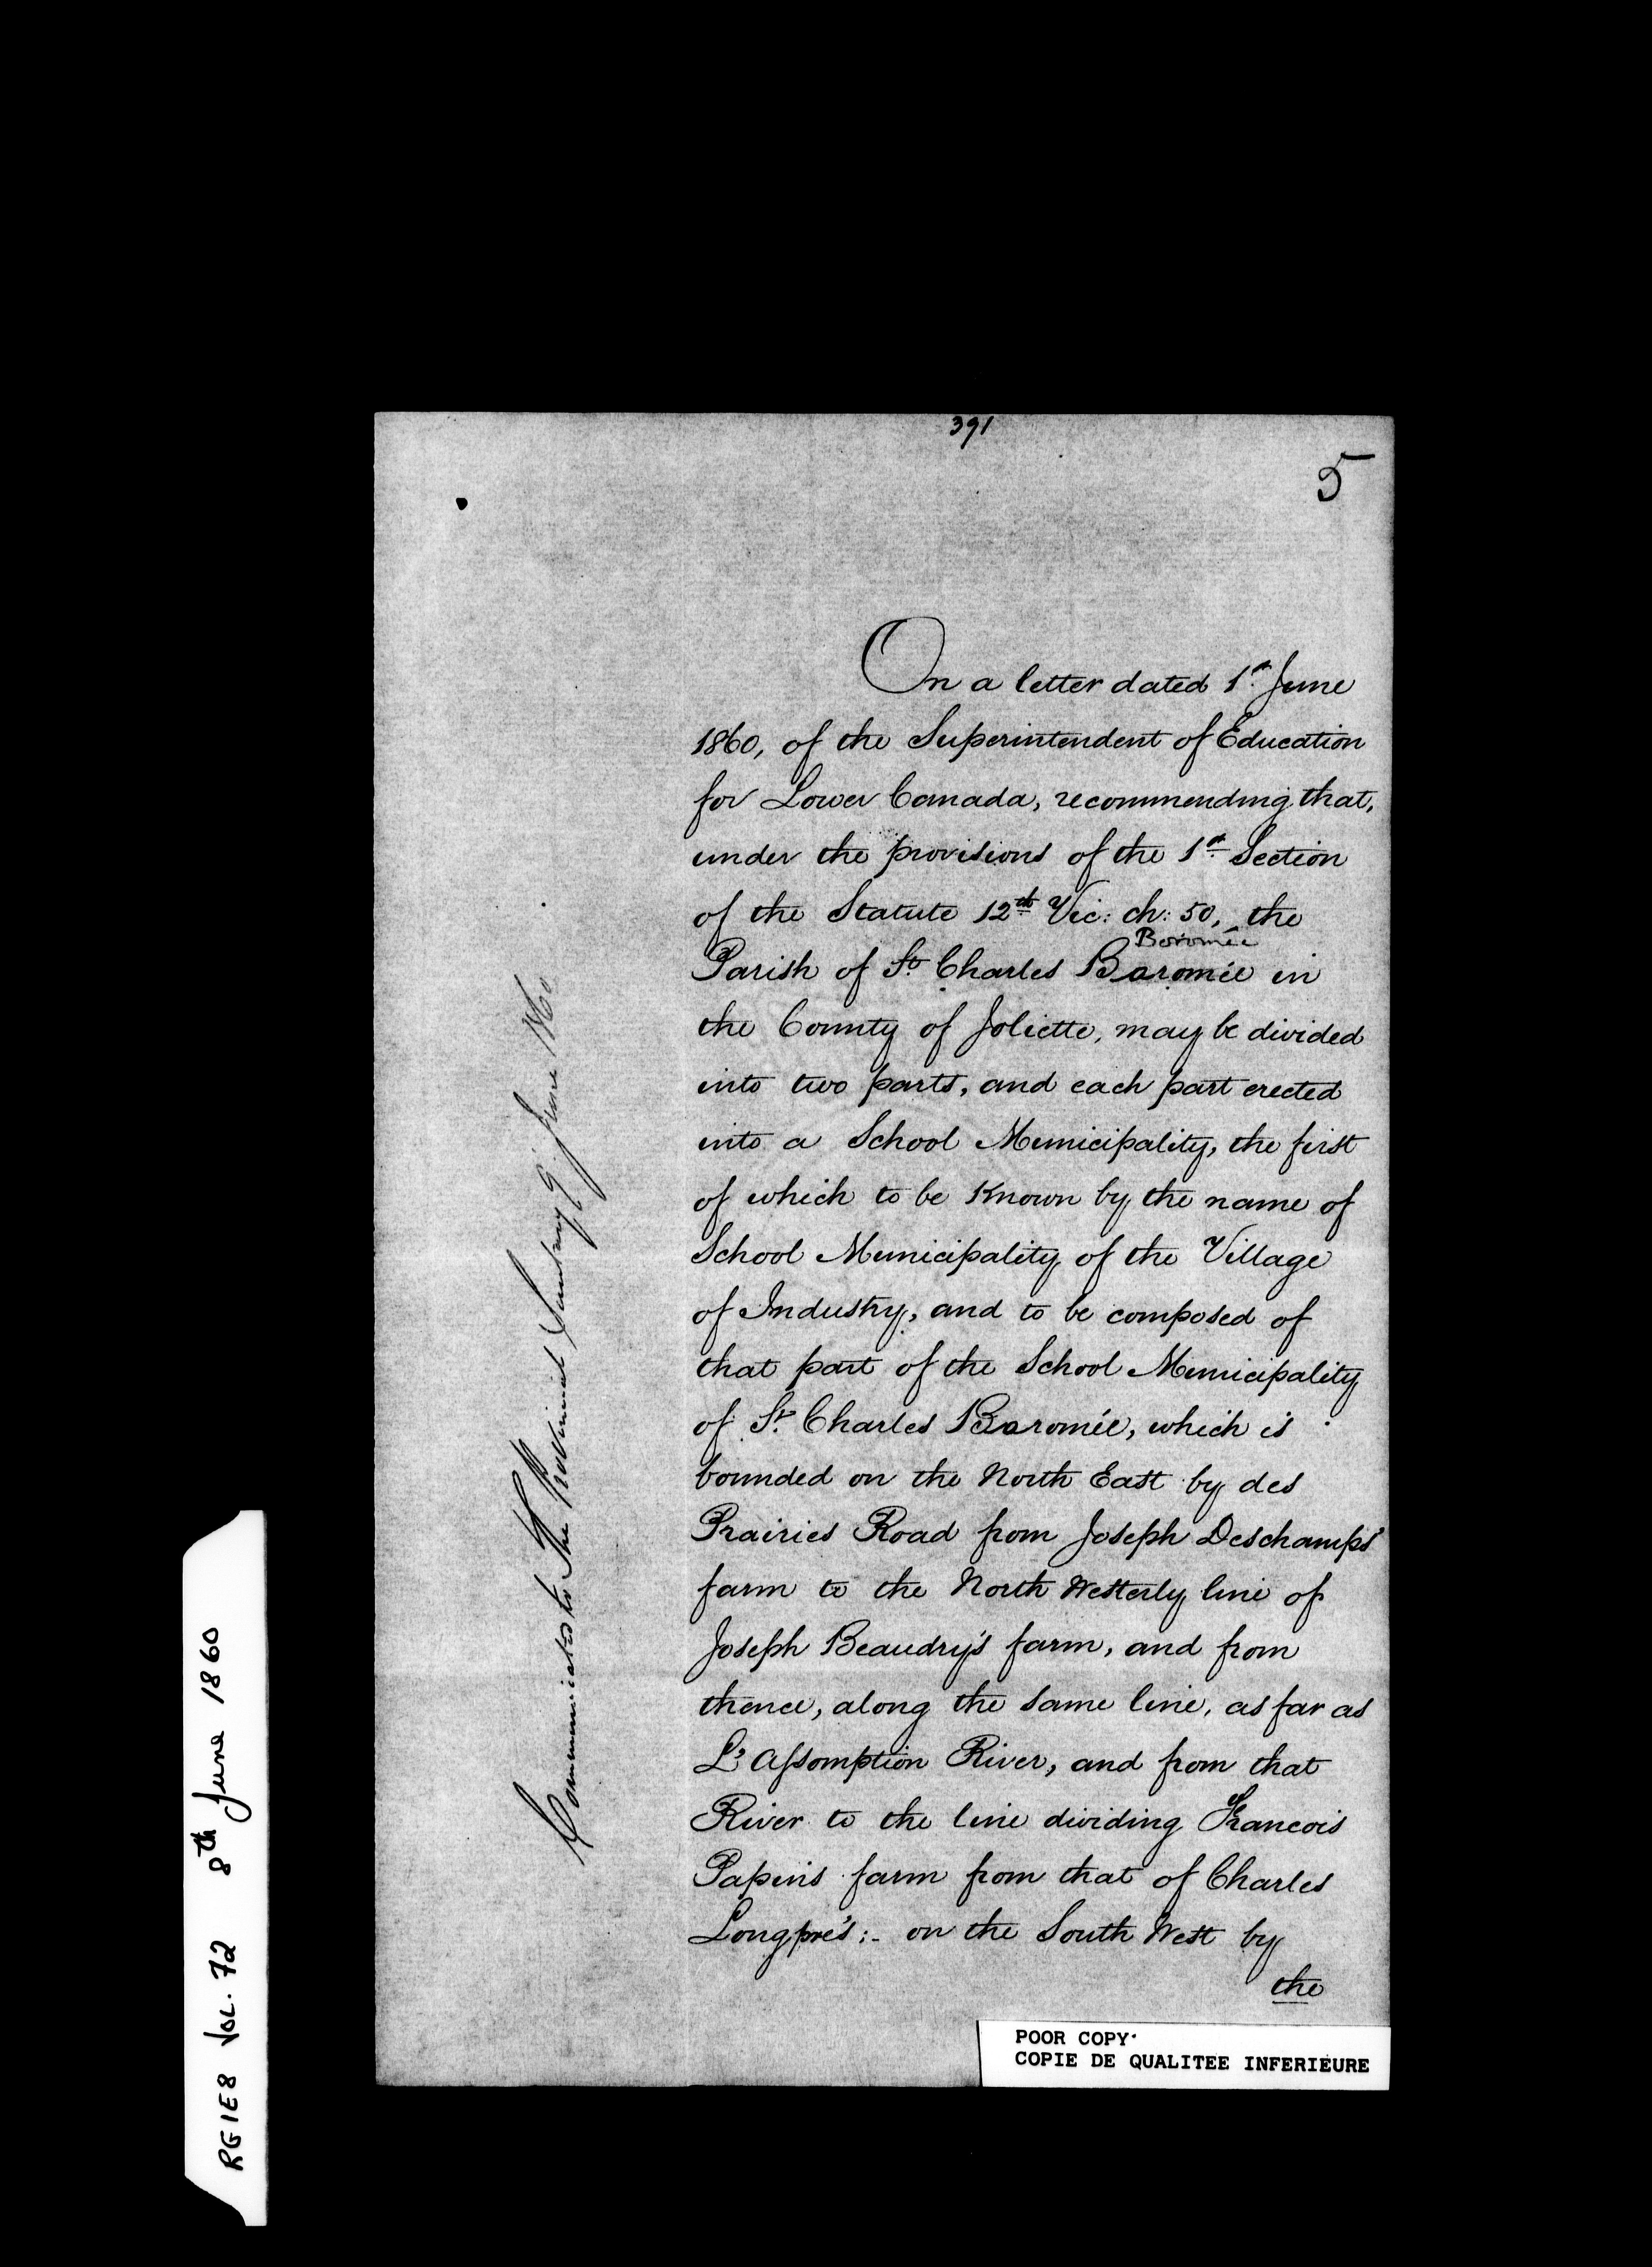 391
5
On a letter dated 1st June
1860, of the Superintendent of Education
for Lower Canada, recommending that,
under the provisions of the 1st Section
of the Statute 12th Vic: ch: 50, the
Boromée
Parish of St. Charles Baromée in
the County of Joliette, may be divided
into two parts, and each part erected
into a School Municipality, the first
of which to be Known by the name of
School Municipality of the Village
of Industry, and to be composed of
that part of the School Municipality
of St. Charles Baromée, which is
bounded on the North East by des
Prairies Road from Joseph Deschamps'
farm to the North Westerly line of
Joseph Beaudry's farm, and from
thence, along the same line, as far as
L'Assomption River, and from that
River to the line dividing Francois
Papin's farm from that of Charles
Longpré's:- on the South West by
the
Communicated to The Provincial Secretary 9 June 1860
RG1E8 VOL. 72 8th June 1860
POOR COPY
COPIE DE QUALITEE INFERIEURE